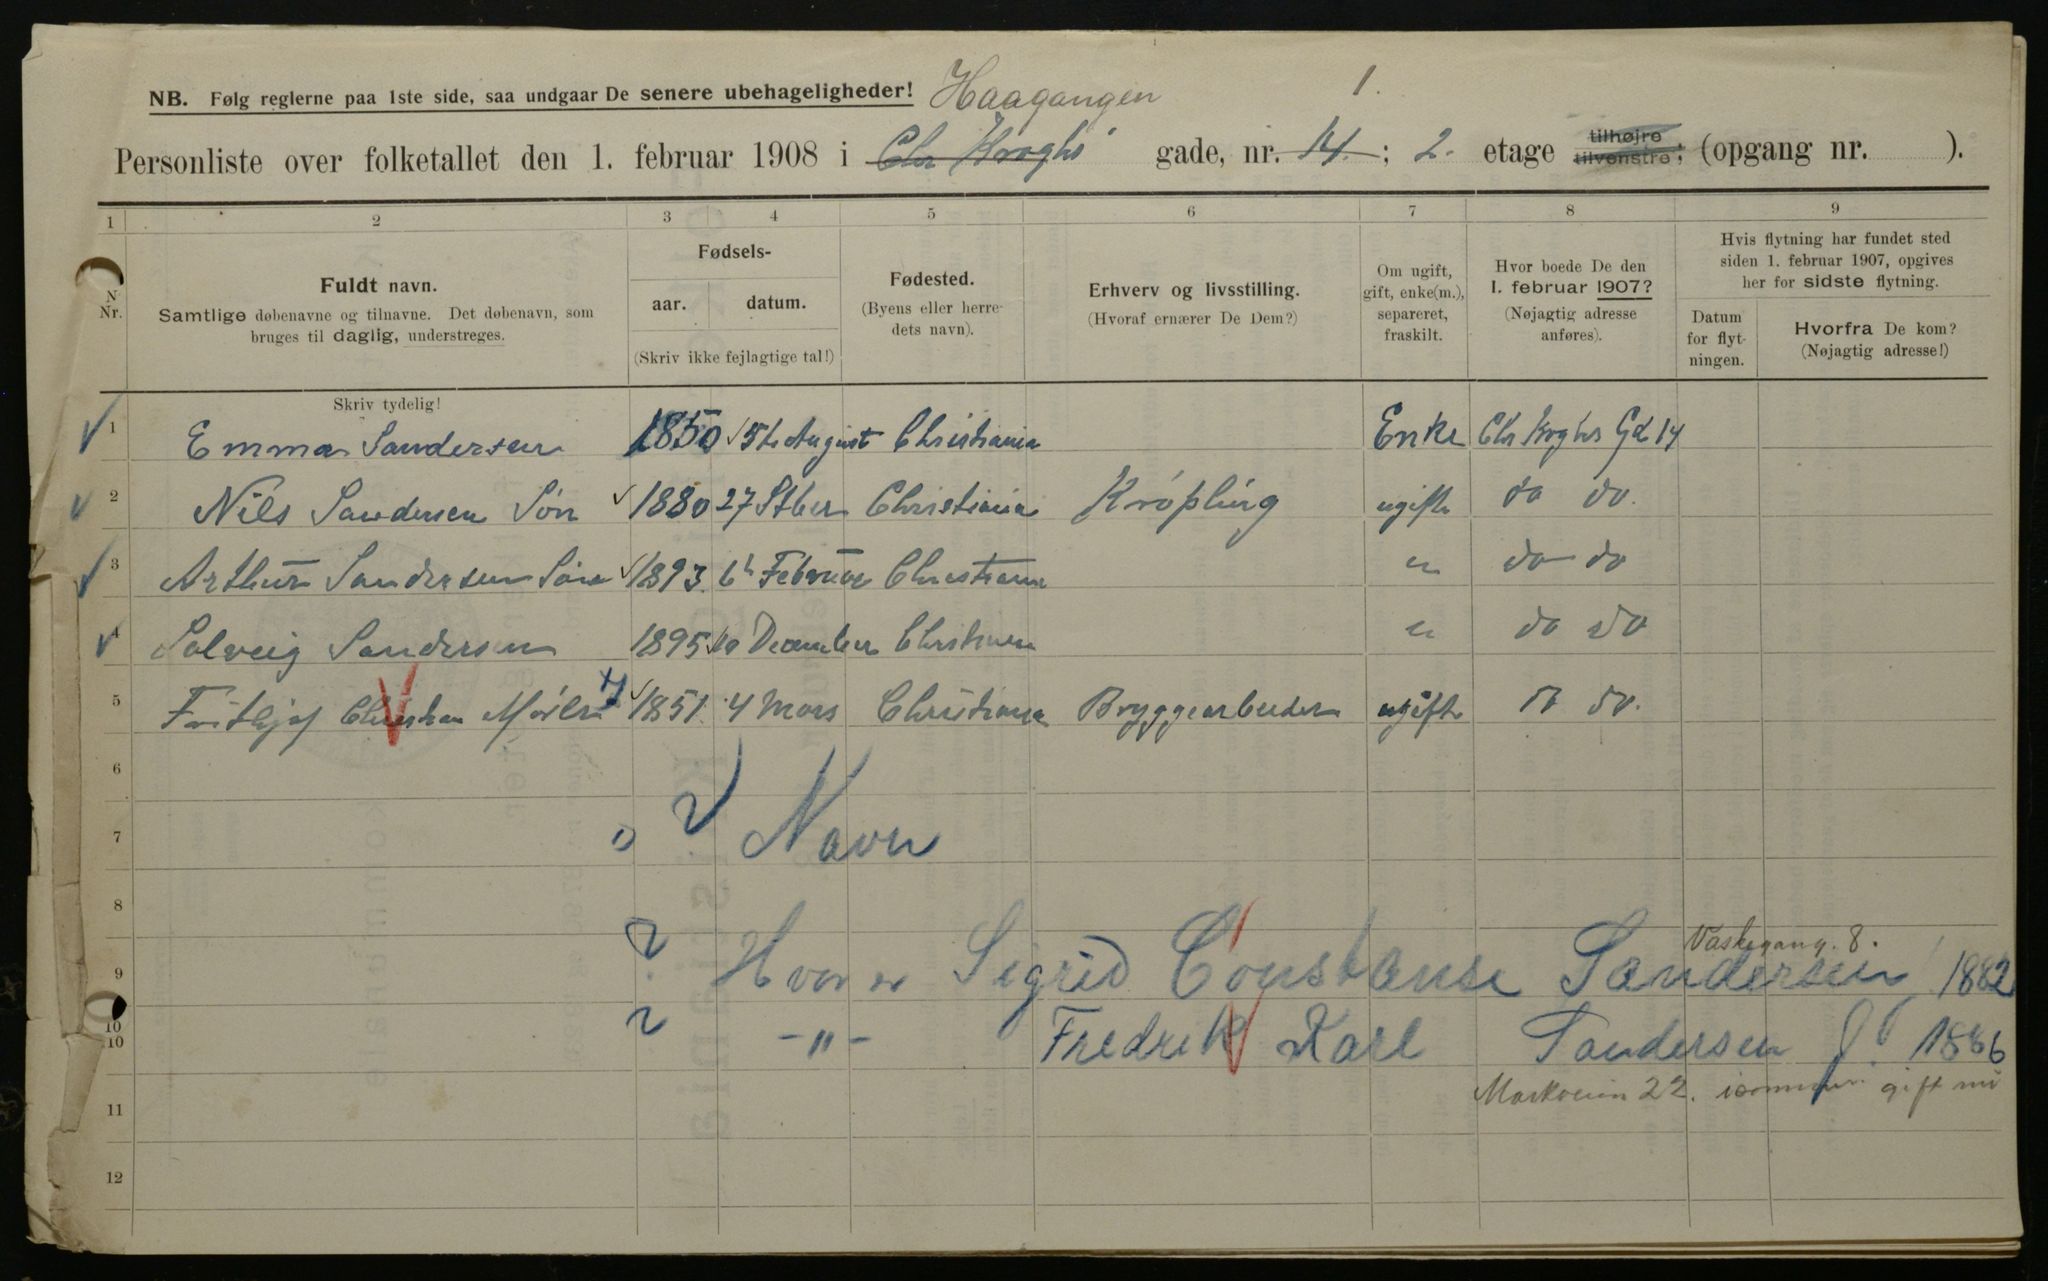 NB. Følg reglerne paa 1ste side, saa undgaar De senere ubehageligheder! Haagangen 1.
Personliste over folketallet den 1. februar 1908 i Chr Kroghs gade, nr. 14. ; 2. etage tilhøjre tilvenstre; (opgang nr. ).
1 2 3 4 5 6 7 8 9
N Nr.
Fuldt navn.
Samtlige døbenavne og tilnavne. Det døbenavn, som
bruges til daglig, understreges.
Fødsels-
aar. datum.
(Skriv ikke fejlagtige tal!)
Fødested.
(Byens eller herre-
dets navn).
Erhverv og livsstilling.
(Hvoraf ernærer De Dem?)
Om ugift,
gift, enke(m.),
separeret,
fraskilt.
Hvor boede De den
1. februar 1907?
(Nøjagtig adresse
anføres).
Hvis flytning har fundet sted
siden 1. februar 1907, opgives
her for sidste flytning.
Datum
for flyt-
ningen.
Hvorfra De kom?
(Nøjagtig adresse!)
Skriv tydelig!
1 Emma Sandersen 1850 August Christiania Enke Chr Kroghs Gd 14
2 Nils Sandersen Søn 1880 27 Christiania ugift do do.
3 Arthur Sandersen Søn 1893. 6 Februar Christiania " do do
4 Solveig Sandersen 1895 10 December Christiania " do do
5 Frithjof Christian 1851. 4 Mars Christiania Bryggearbeider ugift do do.
6
7 ? Navn
8
Vaskegang. 8.
9 ? Hvor er Sigrid Constanse Sandersen 1882
10
10 ? -"- Fredrik Karl Sandersen f. 1886
Markveien 22. gift nu
11
12